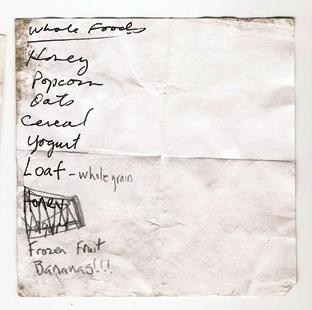 Whole Foods
Honey
Popcorn
Oats
Cereal
Yogurt
Loaf - whole grain
Honey
Frozen Fruit
Bananas!!!